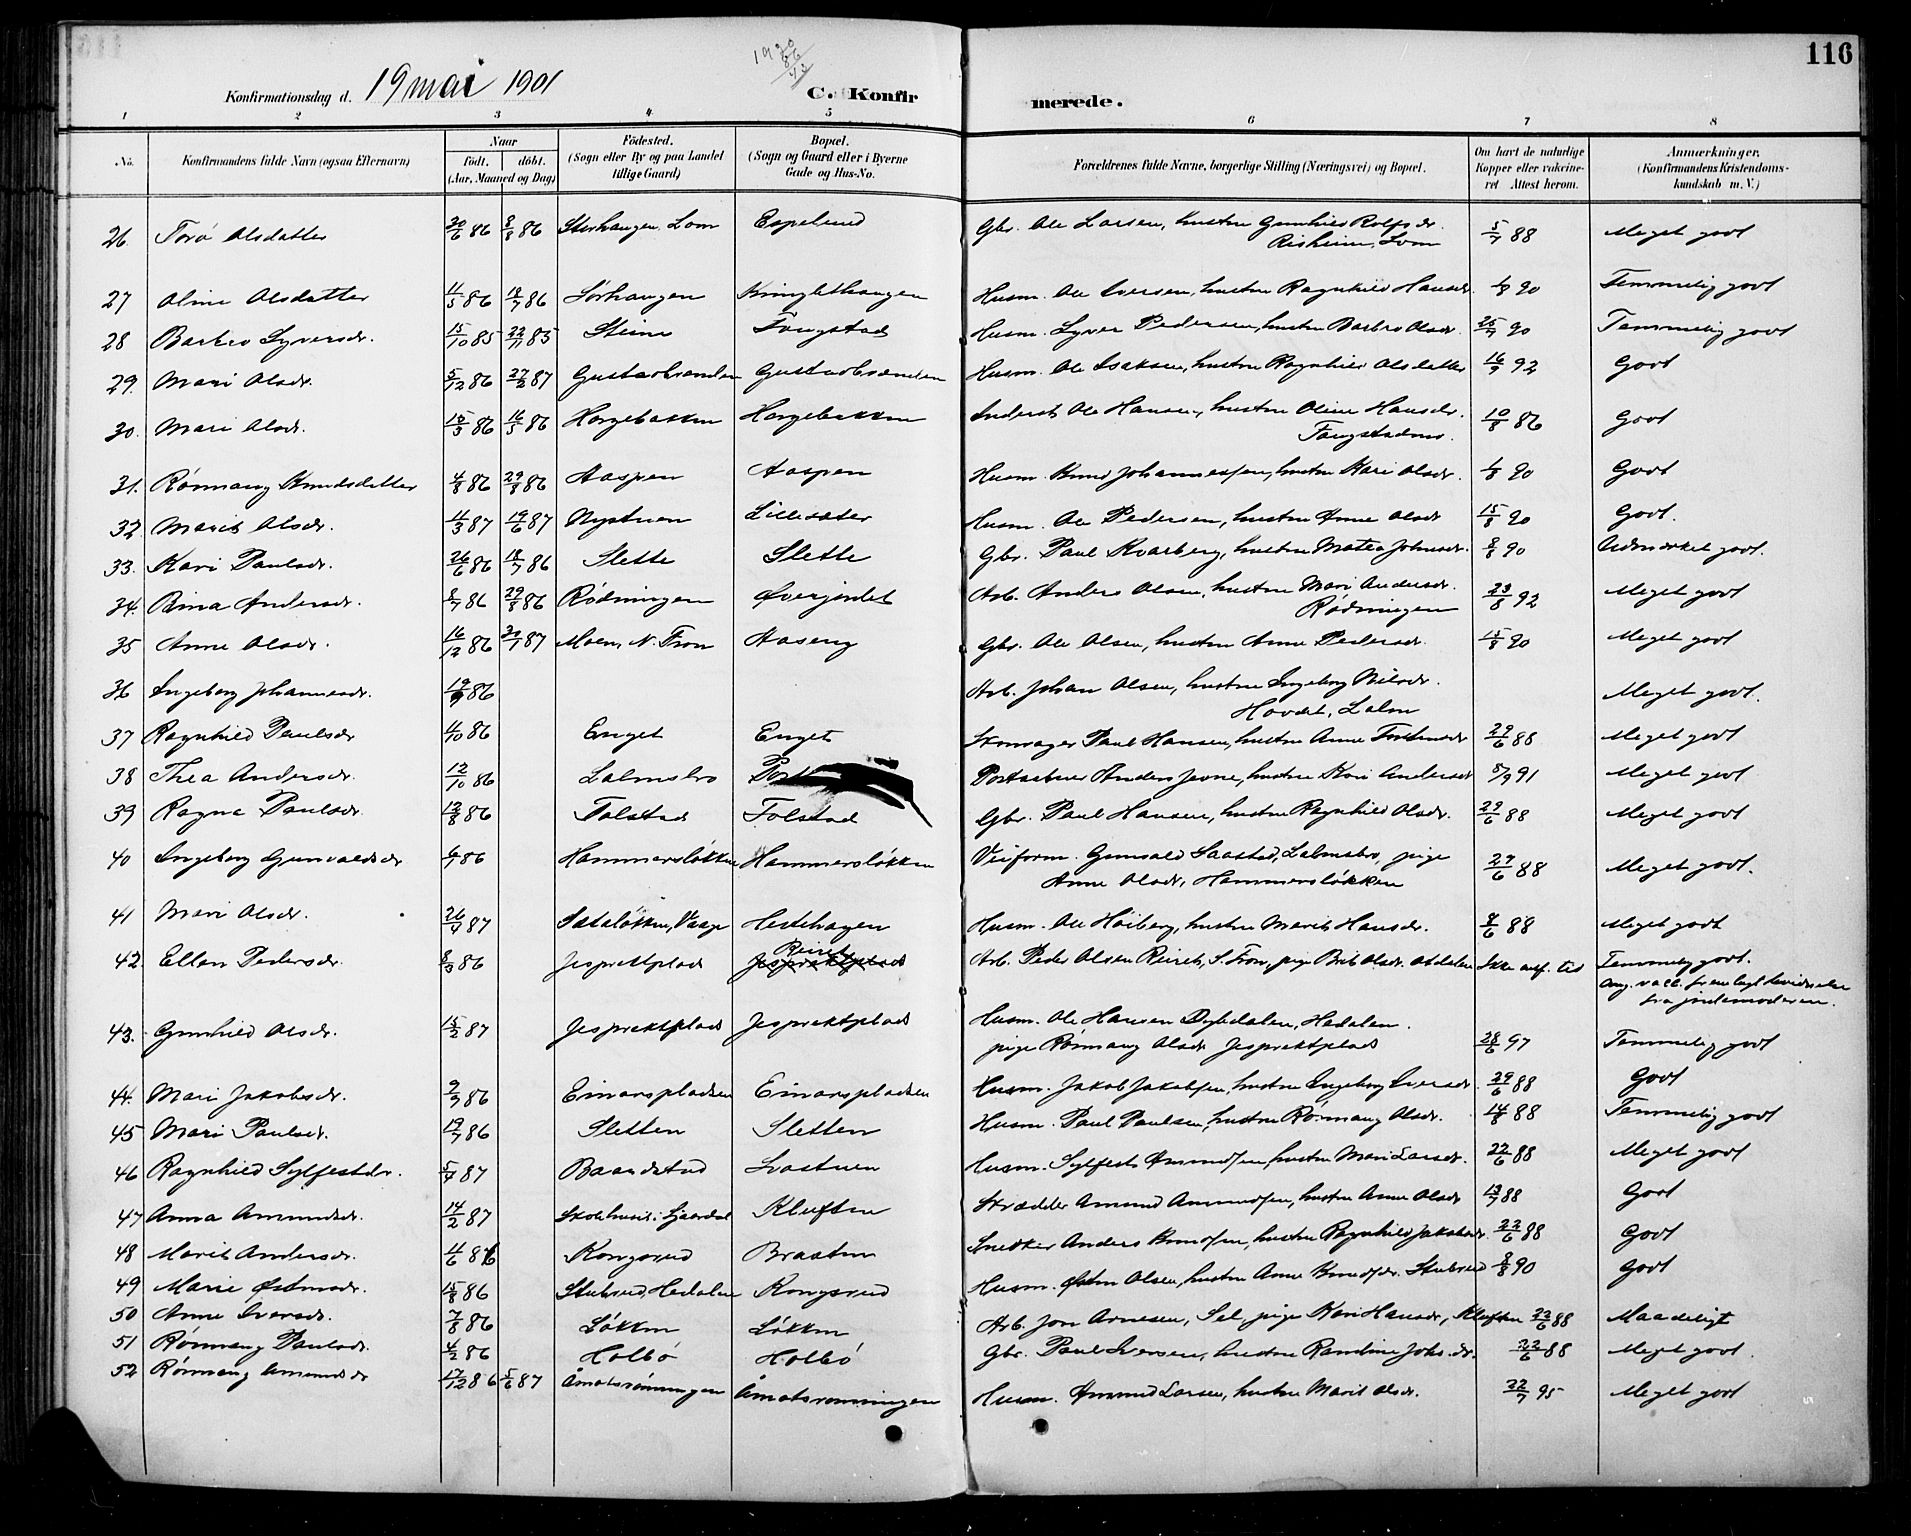 116
Konfirmationsdag d. 19 mai 1901
C. Konfirmerede.
1 2 3 4 5 6 7 8
No. Konfirmandens fulde Navn (ogsaa Efternavn) Naar födt. döbt. (Aar, Maaned og Dag) Födested. (Sogn eller By og paa Landet tillige Gaard) Bopæl. (Sogn og Gaard eller i Byerne Gade og Hus-No. Forældrenes fulde Navne, borgerlige Stilling (Næringsvei) og Bopæl. Om havt de naturlige Kopper eller vakcineret Attest herom. Anmærkninger. (Konfirmandens Kristendomskundskab m. V.)
26. Torø Olsdatter 20/6 86 8/8 86 Lom Espelund Gbr. Ole Larsen, hustru Gunhild Rolfsdr. Risheim, Lom 5/7 88 Meget godt
27 Oline Olsdatter 11/5 86 18/7 86 Sørhaugen Kringlethaugen Husm. Ole Iversen, hustru Ragnhild Hansdr. 90 Temmelig godt
28 Barbro Syversdr. 15/10 85 22/11 85 Steine Fougstad Husm. Syver Pedersen, hustru Barbro Olsdr. 25/7 90 Temmelig godt
29. Mari Olsdr. 5/12 86 27/2 87 Gustadbranden Gustadbranden Husm. Ole Isaksen, hustru Ragnhild Olsdatter 16/9 92 Godt
30. Mari Olsdr. 15/3 86 16/5 86 Horgebakken Horgebakken Inderst Ole Hansen, hustru Oline Hansdr. 10/8 86 Godt
31. Rønnaug Knudsdatter 4/8 86 29/8 86 Aaspen Aaspen Husm. Knud Johannessen, hustru Kari Olsdr. 90 Godt
32. Marit Olsdr. 11/3 87 19/6 87 Nystuen Lillesæter Husm. Ole Pedersen, hustru Anne Olsdr 15/8 90 Godt.
33. Kari Paulsdr. 26/6 86 18/7 86 Slette Slette Gbr. Paul Kvarberg, hustru Mathea Johnsdr. 8/8 90 Udmærket godt.
34. Rina Andersdr. 8/7 86 29/8 86 Rødningen Øverjordet Arb. Anders Olsen, hustru Mari Andersdr. Rødningen 23/8 92 Meget godt
35 Anne Olsdr. 16/12 86 87 Moen, N. Fron Aaseng Gbr. Ole Olsen, hustru Anne Pedersdr. 15/8 90 Meget godt
36 Ingeborg Johannesdr. 19/9 86 Arb. Johan Olsen, hustru Ingeborg Nilsdr. Hovdet, Lalm Meget godt.
37 Ragnhild Paulsdr 4/10 86 Enget Enget Paul Hansen, hustru Anne 29/6 88 Meget godt
38 Thea Andersdr. 12/10 86 Lalmsbro Postaabner Anders Jevne, hustru Kari Andersdr 8/9 91 Meget godt
39 Ragna Paulsdr. 12/8 86 Tolstad Tolstad Gbr. Paul Hansen, hustru Ragnhild Olsdr. 29/6 88 Meget godt
40 Ingeborg Gunvaldsdr 86 Hammersløkken Hammersløkken Veiform. Gunvald Saastad, Lalmsbro, pige Anne Olsdr, Hammersløkken 29/6 88 Meget godt.
41 Mari Olsdr. 26/4 87 Vaage Hestehagen Husm. Ole Høiberg, hustru Marit Hansdr. 8/6 88 Meget godt
42. Ellen Pedersdr. 8/3 86 Jesprektplads Reiret Arb. Peder Olsen Reiret, S. Fron, pige Brit Olsdr. Ikke Temmelig godt.
fra jordemoderen.
43. Gunhild Olsdr. 15/2 87 Jesprektplads Jesprektplads Husm. Ole Hansen Dybdalen, Hedalen. pige Rønnaug Olsdr Jesprektplads 28/6 97 Temmelig godt
44. Mari Jakobsdr. 2/7 86 Einarspladsen Einarspladsen Husm. Jakob Jakobsen, hustru Ingeborg Iversdr. 29/6 88 Godt
45 Mari Paulsdr. 19/7 86 Sletten Sletten Husm. Paul Paulsen, hustru Rønnaug Olsdr. 14/8 88 Temmelig godt
46 Ragnhild Sylfestdr. 5/4 87 Baandstad Svastuen Husm. Sylfest Amundsen, hustru Mari Larsdr. 22/6 88 Meget godt
47 Anna Amundsdr. 14/2 87 Skolehuset i Kluften Skrædder Amund Amundsen, hustru Anne Olsdr 13/7 88 Godt
48 Marit Andersdr. 4/6 86 Kongsrud Braaten Snedker Anders Knudsen, hustru Ragnhild Jakobsdr. 22/6 88 Godt
49 Marie Østensdr. 15/8 86 Stubrud, Hedalen Kongsrud Husm. Østen Olsen, hustru Anne Knudsdr. Stubrud 8/8 90 Godt
50 Anne Iversdr. 7/8 86 Løkken Løkken Arb. Jon Arnesen, Sel, pige Kari Hansdr, Kluften 22/6 88 Maadeligt
51 Rønnaug Paulsdr. 4/2 86 Holbø Holbø Gbr. Paul Iversen, hustru Randine Johs.dr. 22/6 88 Meget godt.
52 Rønnaug Amundsdr 17/12 86 5/6 87 Åmotsrønningen Åmotsrønningen Husm. Amund Larsen, hustru Marit Olsdr. 22/7 95 Meget godt